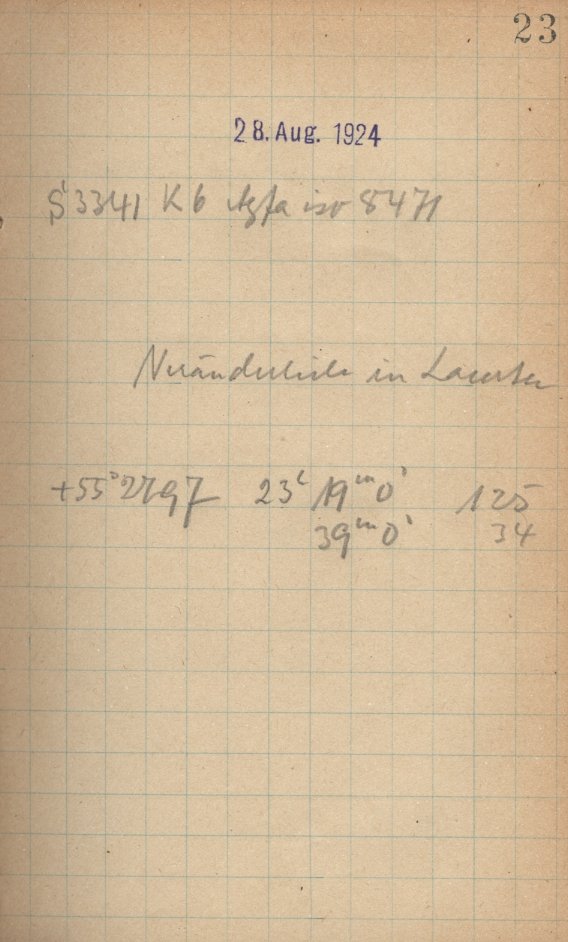 23
28. Aug. 1924
S 3341 K6 Agfa iso 8471
Veränderliche in Lacerta
+55° 2797 23h 19m 0s 125
39m 0s 34